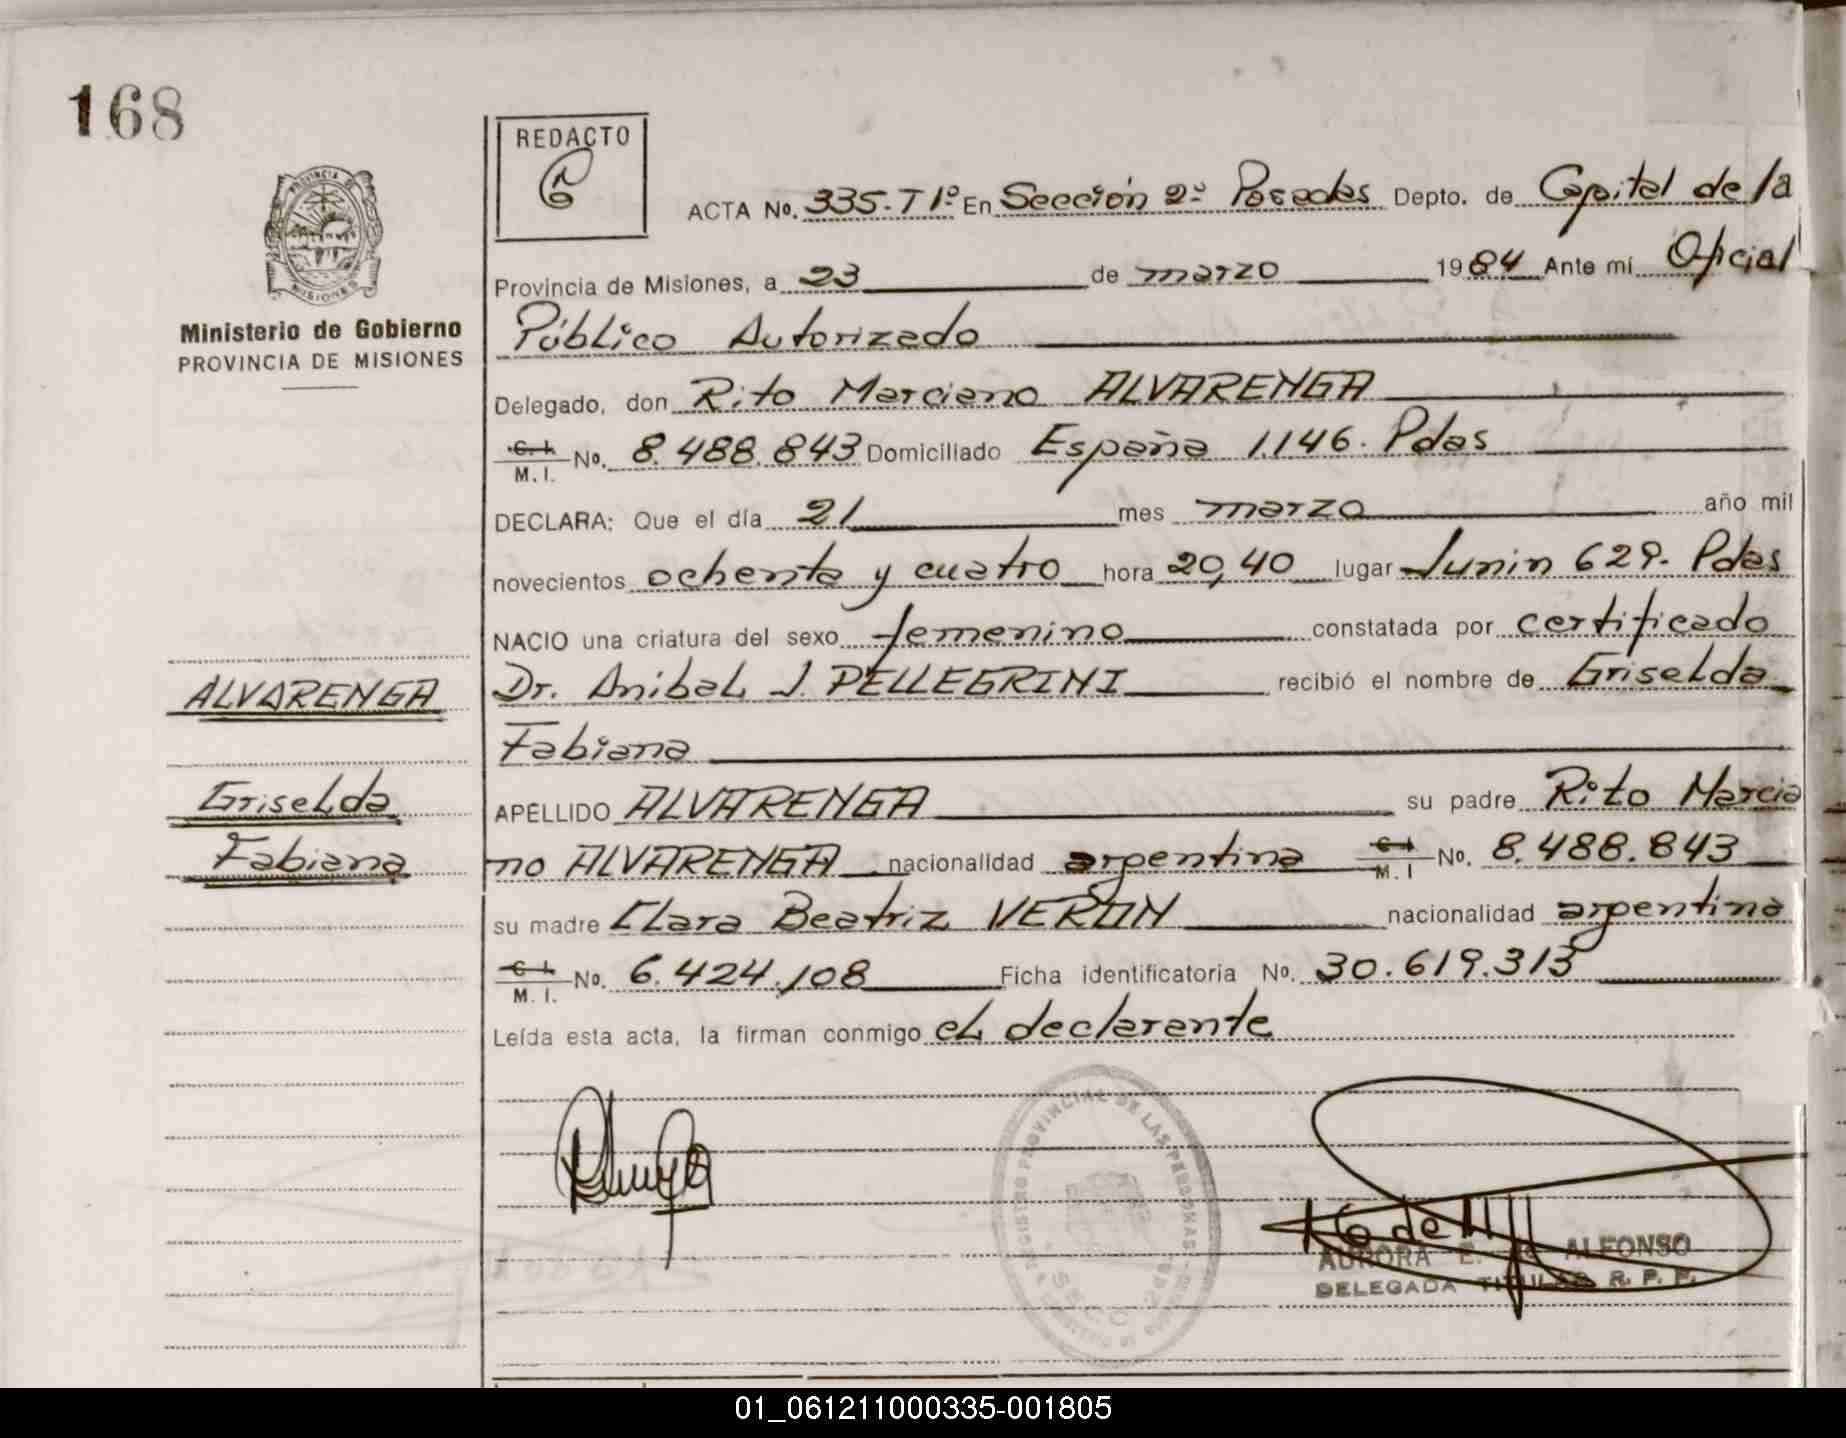 168
REDACTO
PROVINCIA DE
MISIONES
Ministerio de Gobierno
PROVINCIA DE MISIONES
ACTA No. 335-T1º En Sección 2ª Posadas Depto. de Capital de la
Provincia de Misiones, a 23 de marzo 1984 Ante mí Oficial
Público Autorizado
Delegado, don Rito Marciano ALVARENGA
C.I. M.I. No. 8.488.843 Domiciliado España 1.146. Pdas
DECLARA: Que el día 21 mes marzo año mil
novecientos ochenta y cuatro hora 20,40 lugar Junin 629. Pdas
NACIO una criatura del sexo femenino constatada por certificado
Dr. Anibal J. PELLEGRINI recibió el nombre de Griselda
Fabiana
APELLIDO ALVARENGA su padre Rito Marcia
no ALVARENGA nacionalidad argentina C.I. M.I No. 8.488.843
su madre Clara Beatriz VERON nacionalidad argentina
C.I. M.I. No. 6.424.108 Ficha identificatoria No. 30.619.313
Leída esta acta, la firman conmigo el declarante
ALVARENGA
Griselda
Fabiana
REGISTRO PROVINCIAL DE LAS PERSONAS
SECC. 2da.
AURORA E. ALFONSO
DELEGADA TITULAR R. P. P.
01_061211000335-001805